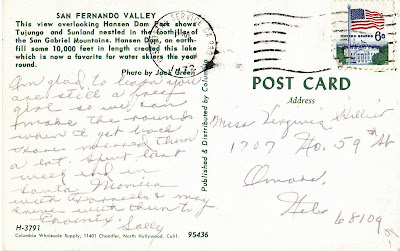 SAN FERNANDO VALLEY
This view overlooking Hansen Dam Park shows
Tujunga and Sunland nestled in the foothills of
the San Gabriel Mountains. Hansen Dam, an earth-
fill some 10,000 feet in length created this lake
which is now a favorite for water skiers the year
round.
Photo by Jack Green
Am glad to hear you
are still a free
girl so we can
make the rounds
when I get back
have missed them
a lot. Spent last
week end in
Santa Monica
with & may
with them to
Phoenix.
Sally
H-3791
Columbia Wholesale Supply, 11401 Chandler, North Hollywood, Calif.
95436
Published & Distributed by Columbia
6c
POST CARD
Address
Miss Virginia
1707 No. 59 St
Omaha,
Nebr
68109